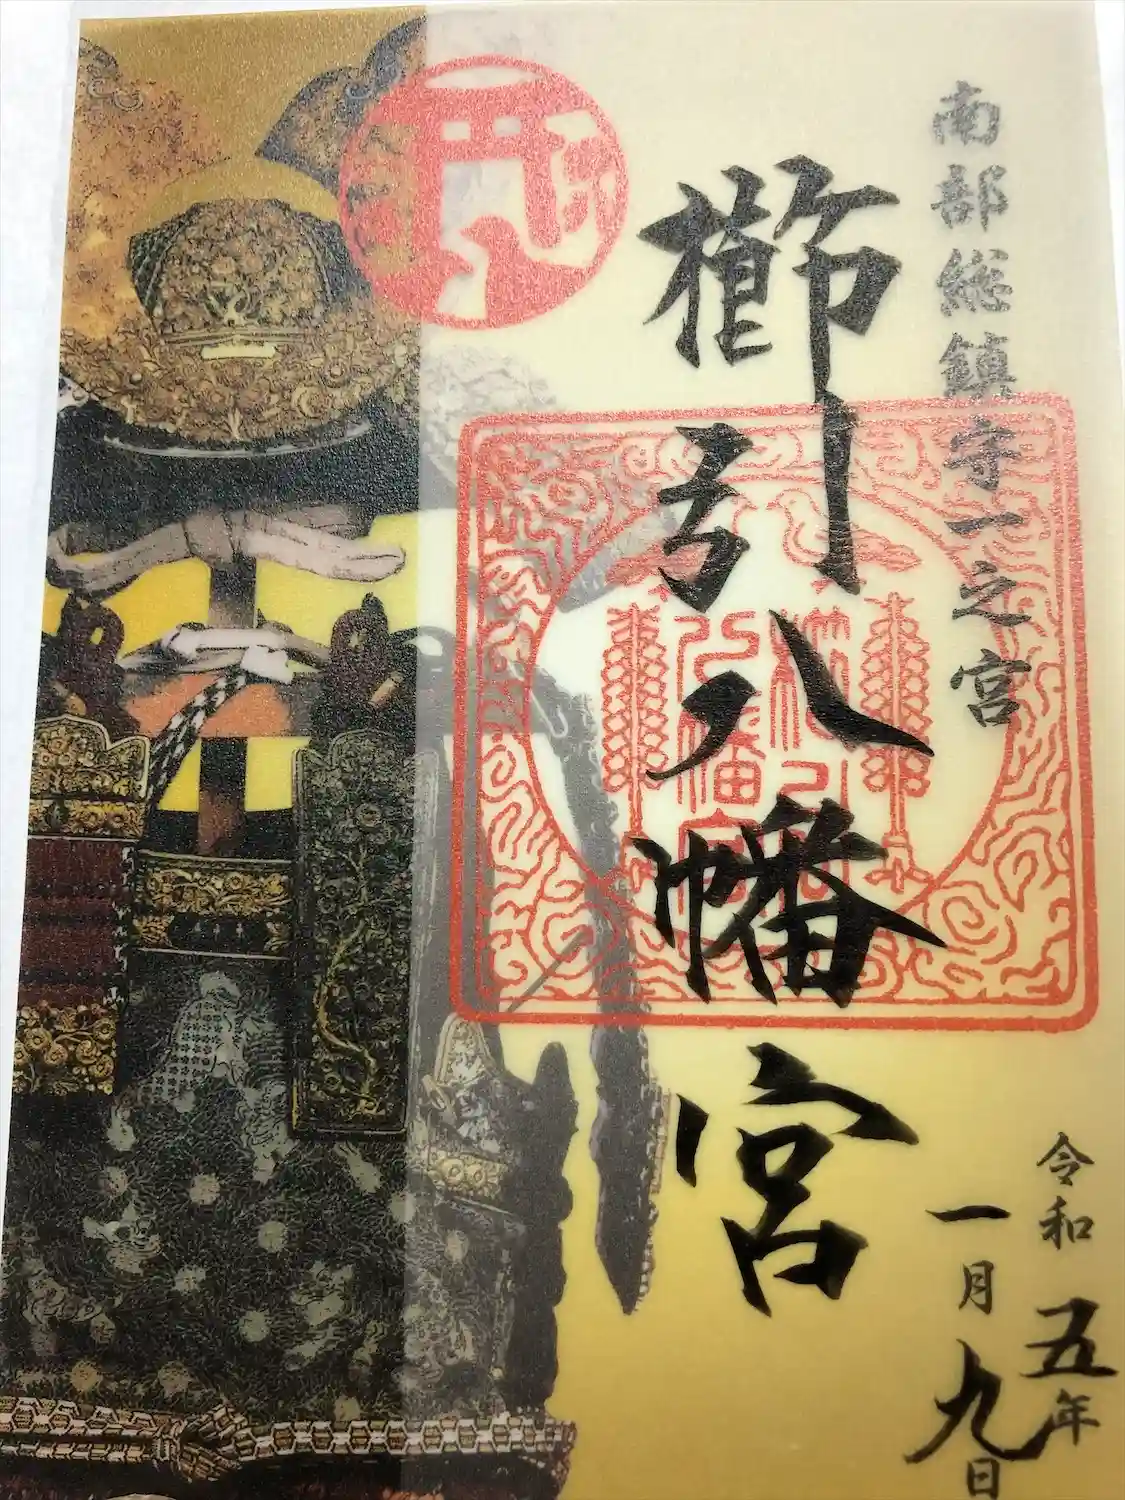 南部総鎮守一之宮
櫛引八幡宮
令和五年
一月九日
櫛引
八幡宮